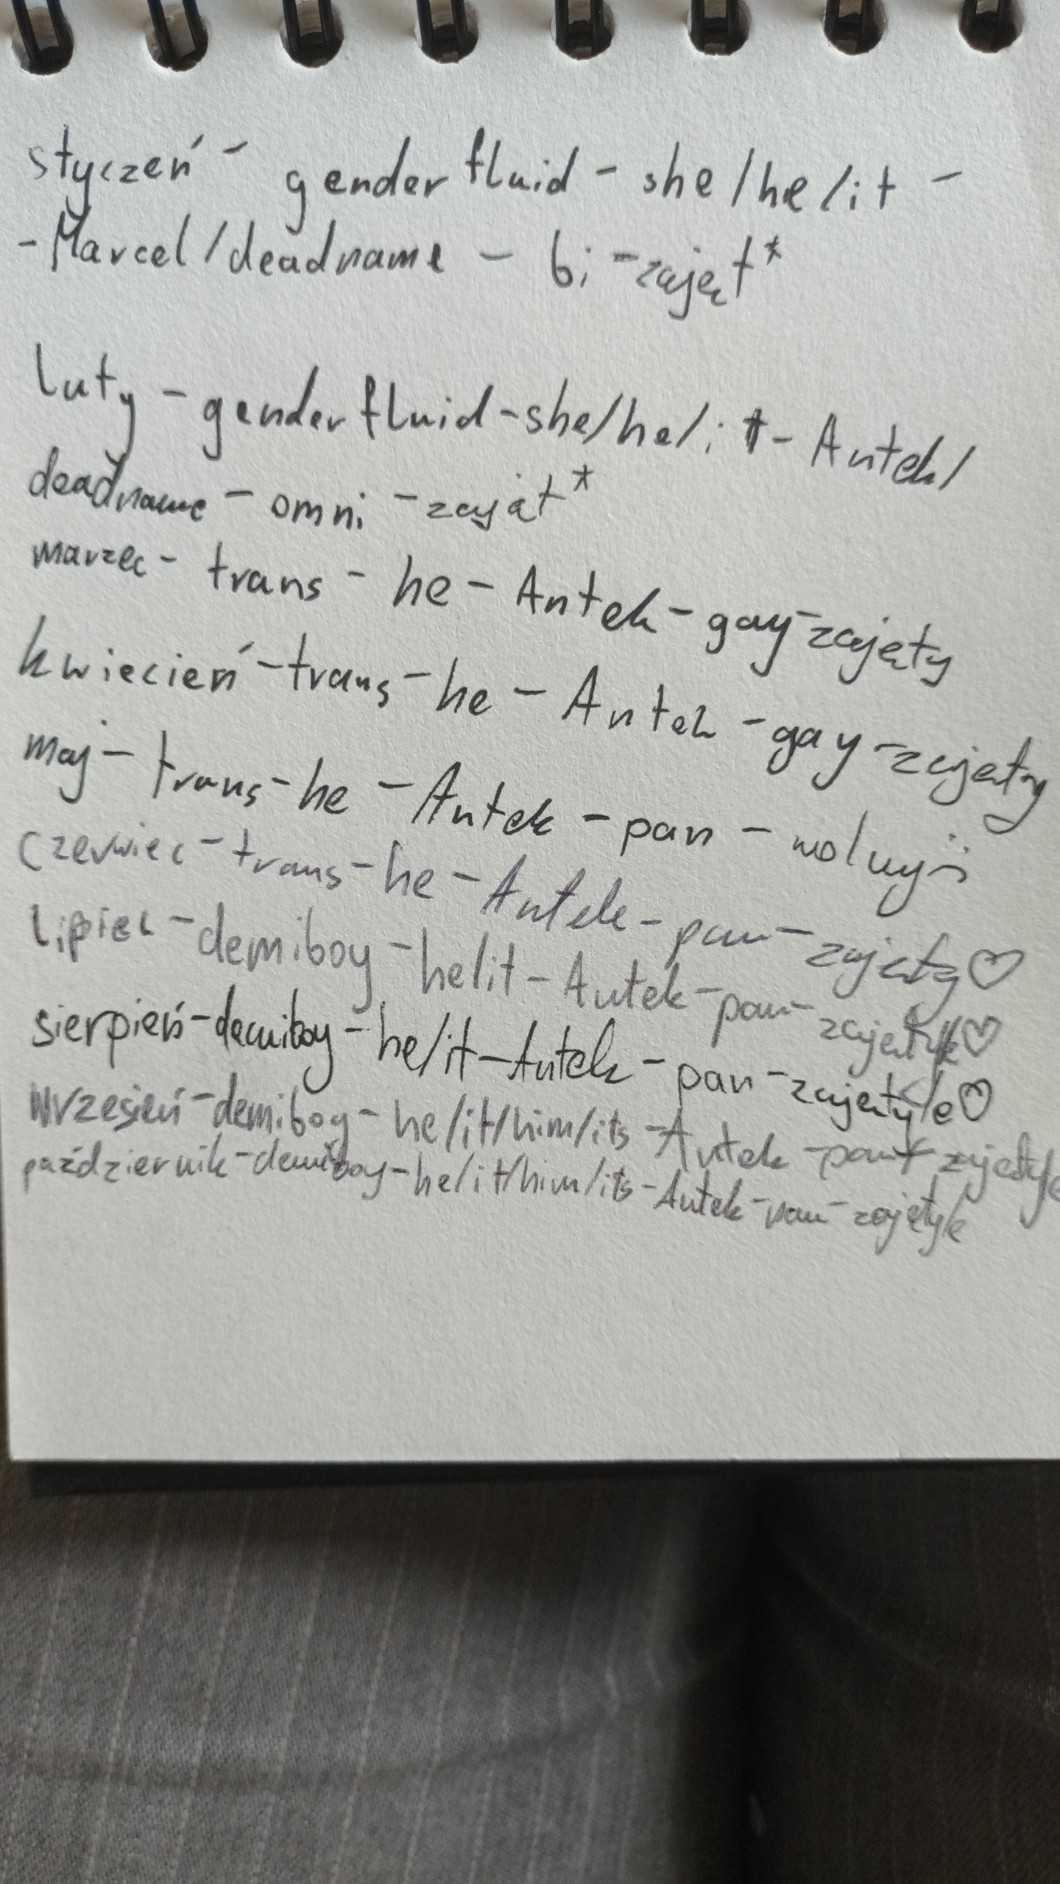 styczeń - genderfluid - she/he/it -
- Marcel/deadname - bi - zajęt*
luty - genderfluid - she/he/it - Antek/
deadname - omni - zajęt*
marzec - trans - he - Antek - gay - zajęty
kwiecień - trans - he - Antek - gay - zajęty
maj - trans - he - Antek - pan - wolny :(
czerwiec - trans - he - Antek - pan - zajęty ♡
lipiec - demiboy - he/it - Antek - pan - zajęty/e ♡
sierpień - demiboy - he/it - Antek - pan - zajęty/e ♡
wrzesień - demiboy - he/it/him/its - Antek - pan - zajęty/e
październik - demiboy - he/it/him/its - Antek - pan - zajęty/e